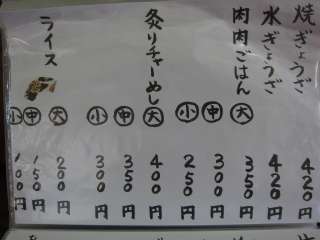 焼ぎょうざ 420円
水ぎょうざ 420円
肉肉ごはん 大 350円
中 300円
小 250円
炙りチャーめし 大 400円
中 350円
小 300円
ライス 大 200円
中 150円
小 100円